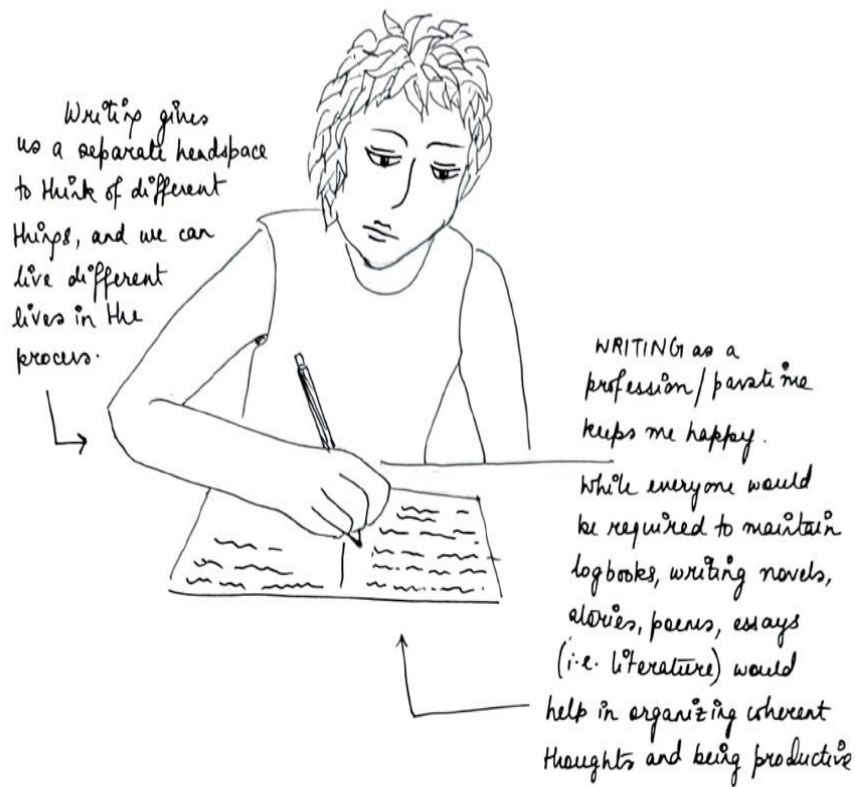 Writing gives
us a separate headspace
to think of different
things, and we can
live different
lives in the
process.
WRITING as a
profession/pasatime
keeps me happy.
While everyone would
be required to maintain
logbooks, writing novels,
stories, poems, essays
(i.e. literature) would
help in organizing coherent
thoughts and being productive